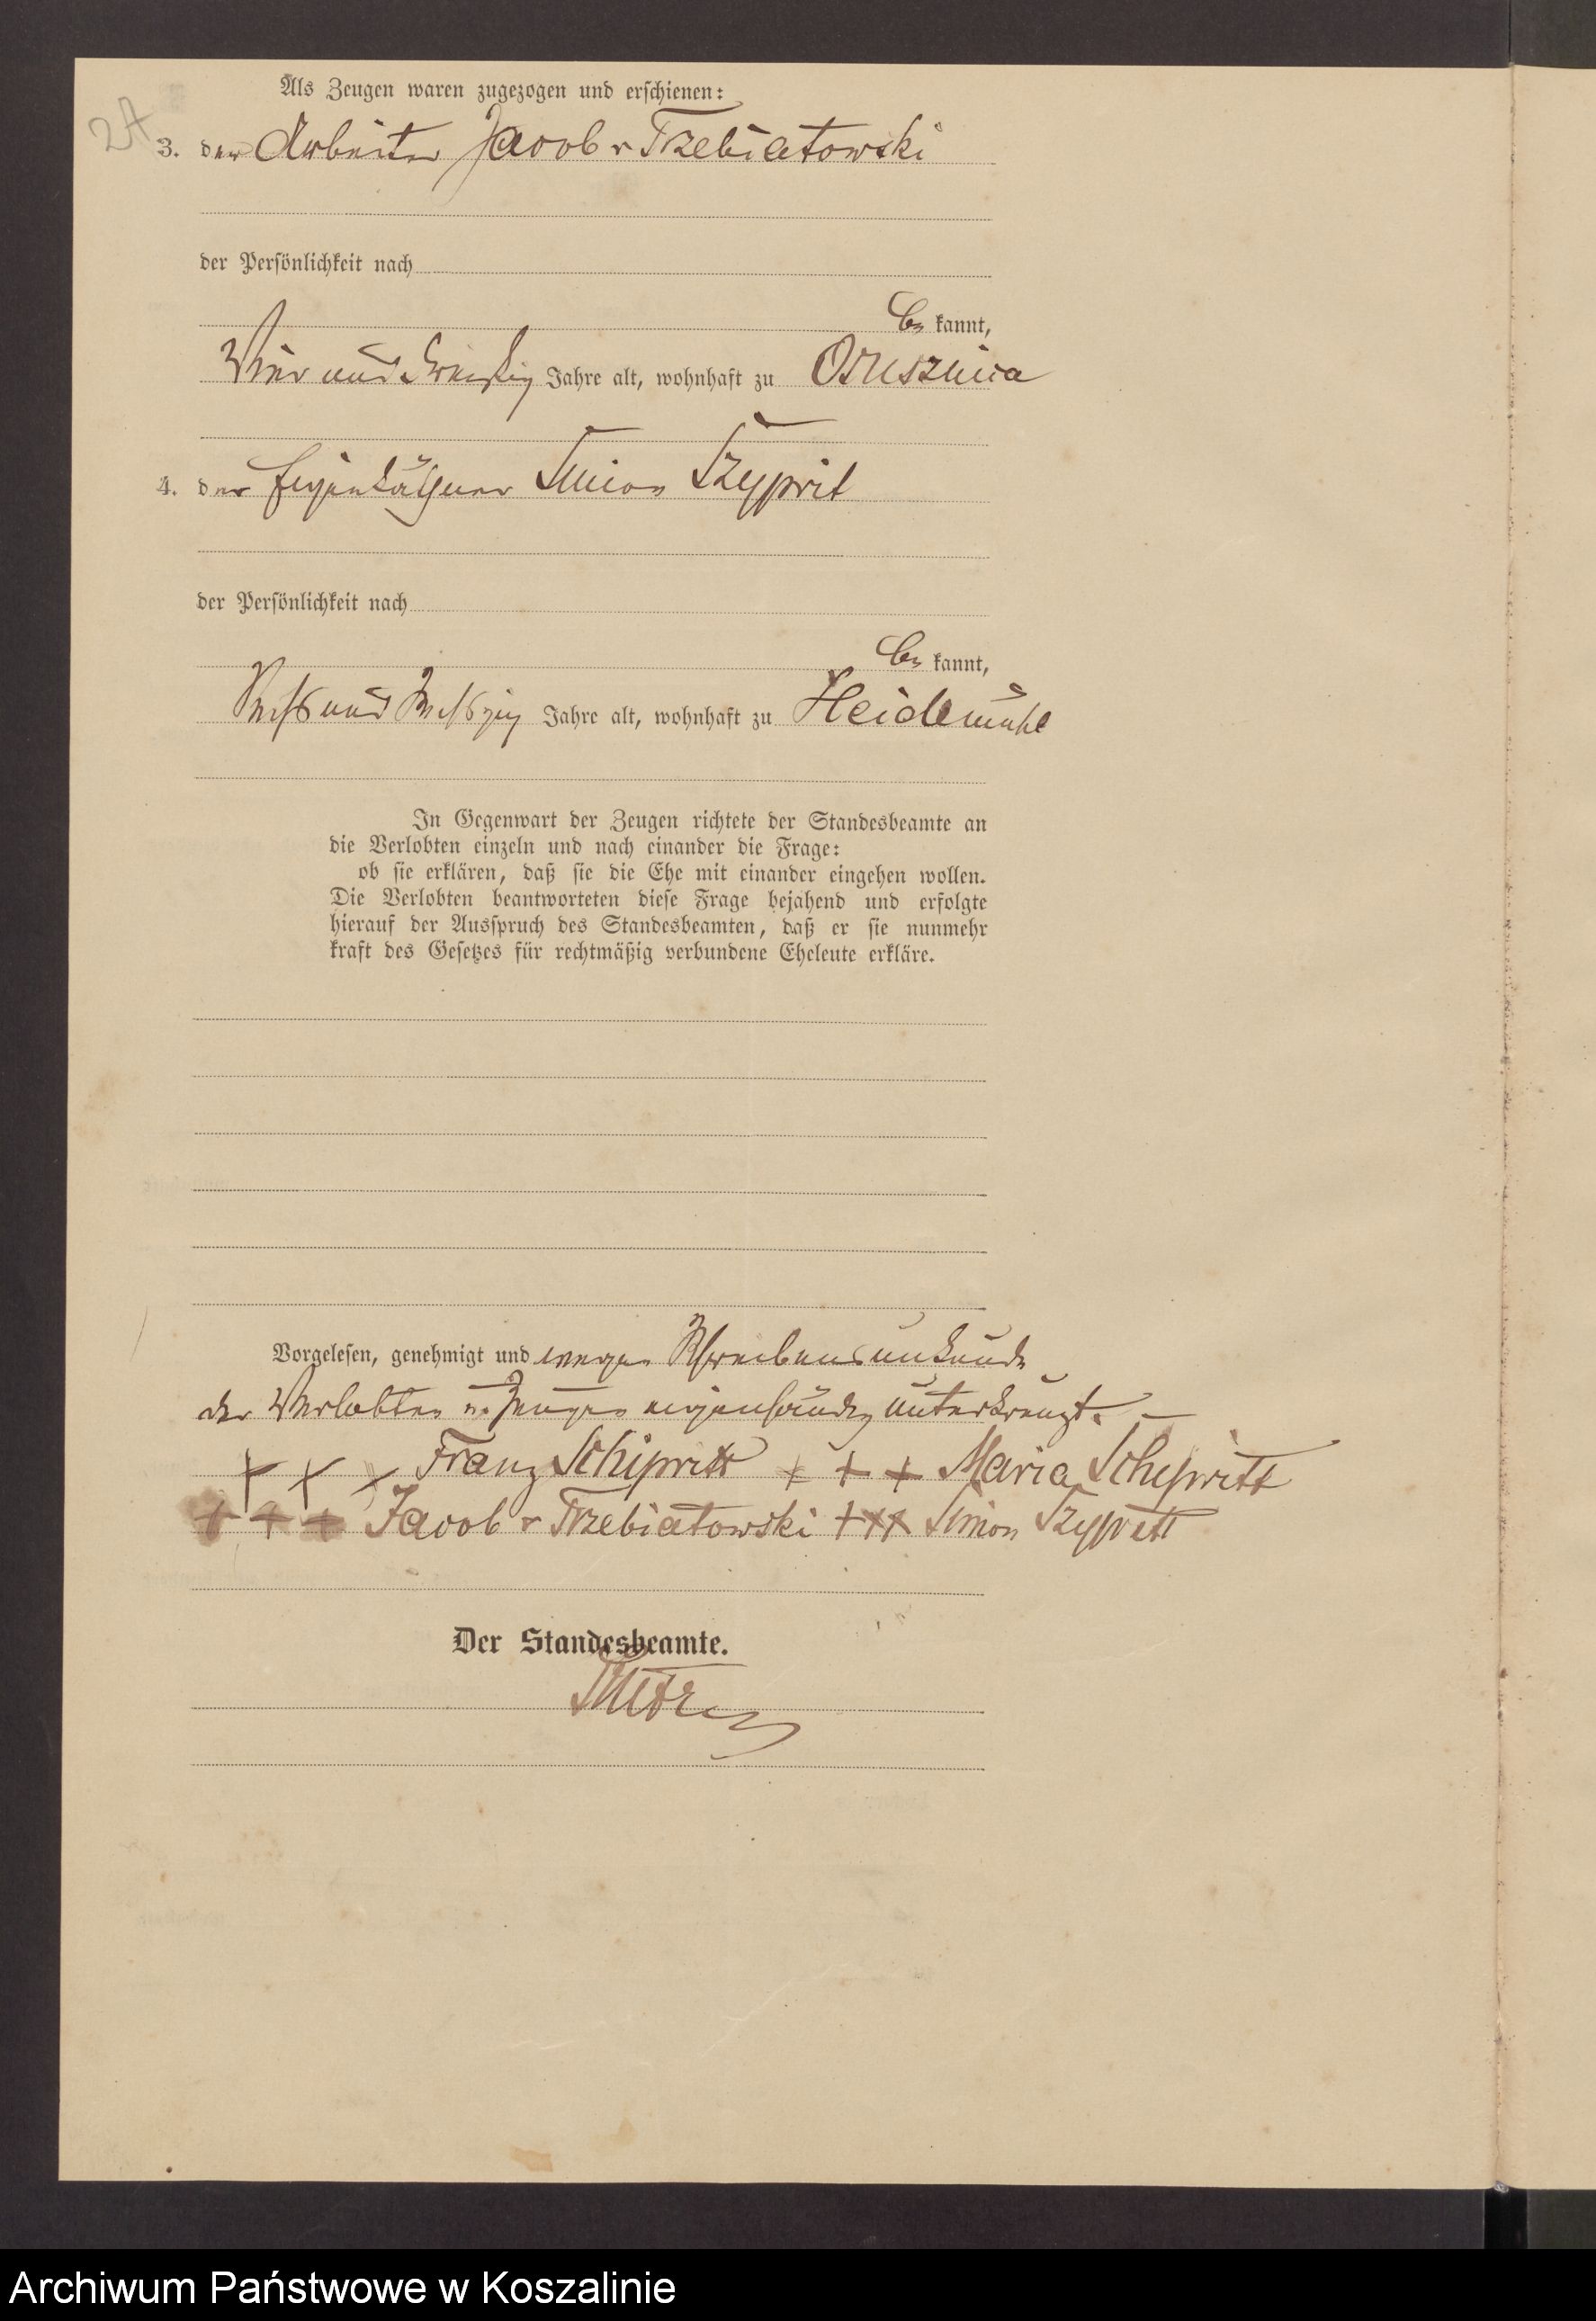 2A
Als Zeugen waren zugezogen und erschienen:
3. der Arbeiter Jacob v Trzebiatowski
der Persönlichkeit nach
be kannt,
Vier und dreißig Jahre alt, wohnhaft zu Osusznica
4. der Eigenkäthner Simon Szyprit
der Persönlichkeit nach
be kannt,
Sechs und Sechszig Jahre alt, wohnhaft zu Heidemühl
In Gegenwart der Zeugen richtete der Standesbeamte an
die Verlobten einzeln und nach einander die Frage:
ob sie erklären, daß sie die Ehe mit einander eingehen wollen.
Die Verlobten beantworteten diese Frage bejahend und erfolgte
hierauf der Ausspruch des Standesbeamten, daß er sie nunmehr
kraft des Gesetzes für rechtmäßig verbundene Eheleute erkläre.
Vorgelesen, genehmigt und wegen Schreibensunkunde
der Verlobten u. Zeugen eigenhändig unterkreuzt. —
+ + + Franz Schipritt + + + Maria Schipritt
+ + + Jacob v Trzebiatowski +++ Simon Szypritt
Der Standesbeamte.
Archiwum Państwowe w Koszalinie